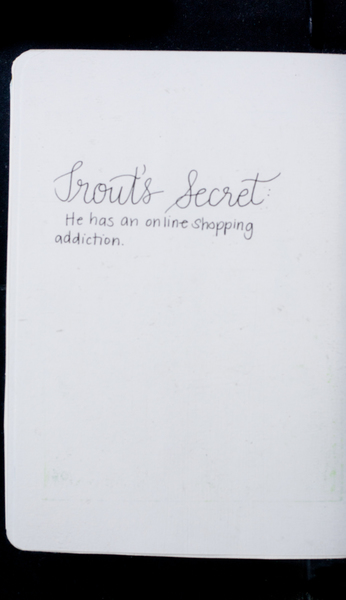 Trout's Secret:
He has an online shopping
addiction.